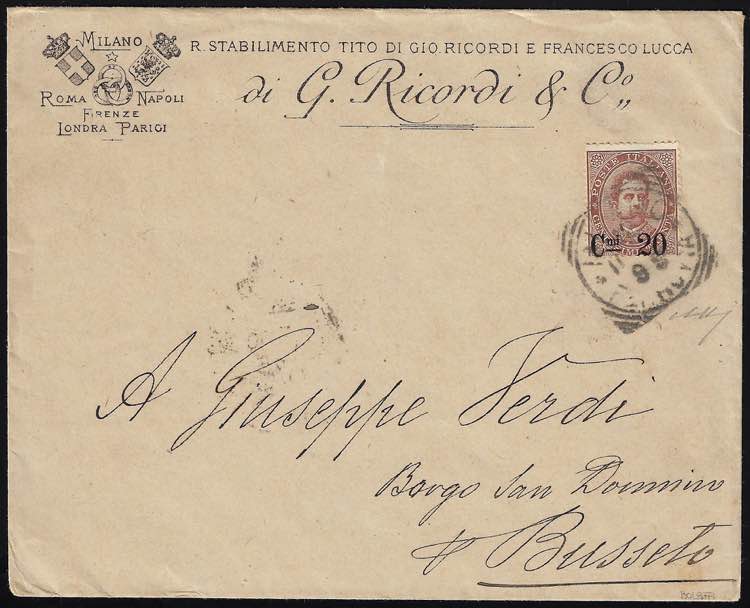 MILANO
ROMA NAPOLI
FIRENZE
LONDRA PARIGI
R. STABILIMENTO TITO DI GIO. RICORDI E FRANCESCO LUCCA
di G. Ricordi & Co.,,
POSTE ITALIANE
Cmi 20
A Giuseppe Verdi
Borgo San Donnino
Busseto